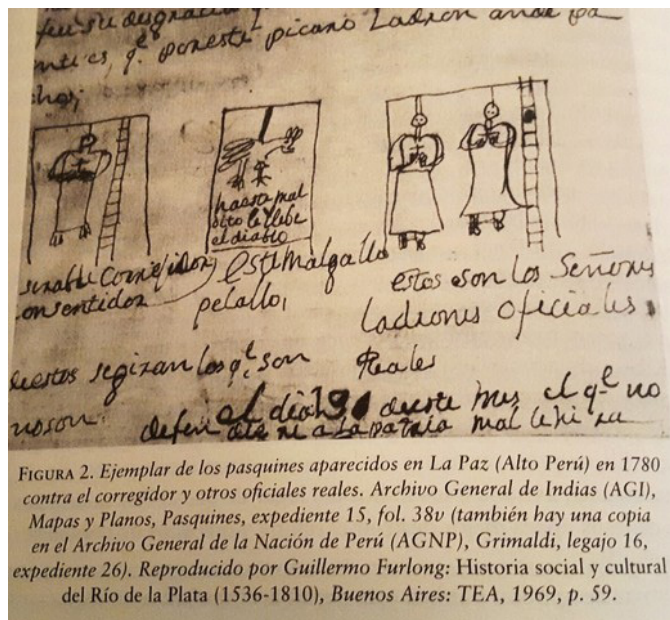 su desgracia
ntes, q.e poneste picaro Ladron ande pa
chos,
haora mal
dito te llebe
el diablo
serable Correjidor
onsentidor
este mal gallo
pelallo,
estos son los Señores
Ladrones oficiales
Reales
destos seguiran los q.e son
no son.
el dia 19 deeste mes el q.e no
defendiere a la patria mal le hira
FIGURA 2. Ejemplar de los pasquines aparecidos en La Paz (Alto Perú) en 1780
contra el corregidor y otros oficiales reales. Archivo General de Indias (AGI),
Mapas y Planos, Pasquines, expediente 15, fol. 38v (también hay una copia
en el Archivo General de la Nación de Perú (AGNP), Grimaldi, legajo 16,
expediente 26). Reproducido por Guillermo Furlong: Historia social y cultural
del Río de la Plata (1536-1810), Buenos Aires: TEA, 1969, p. 59.